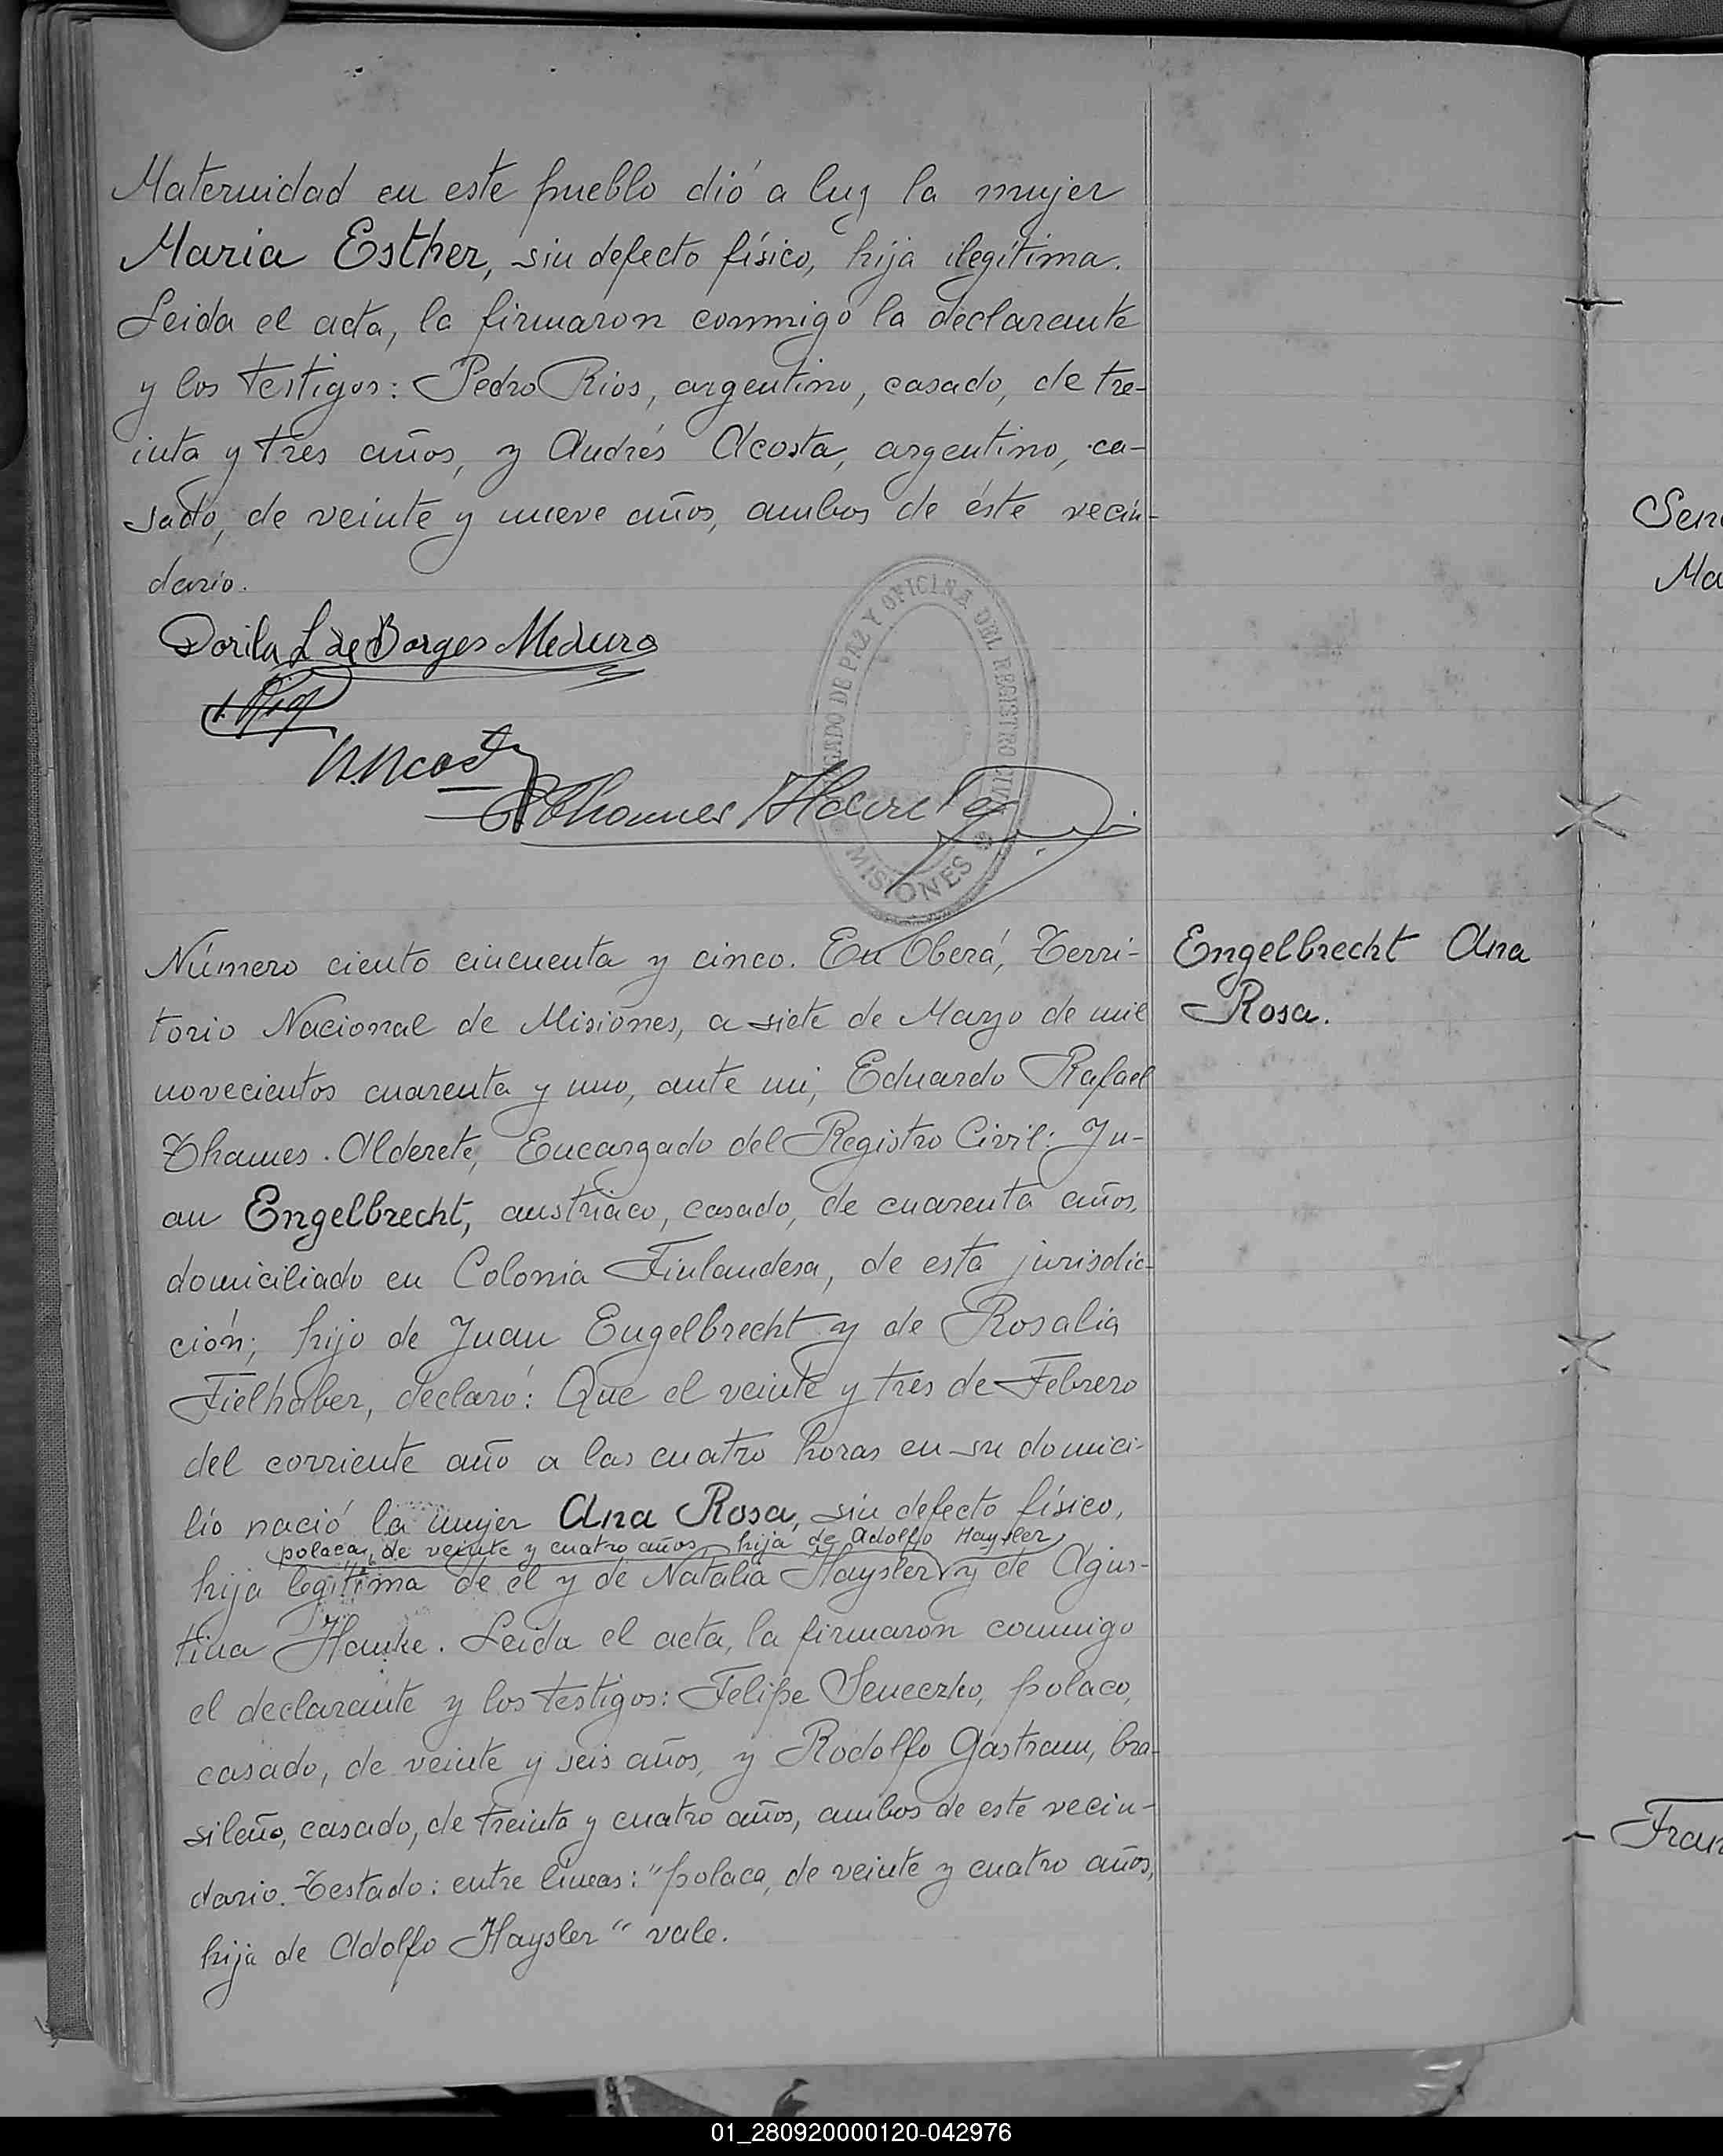 Maternidad en este pueblo dió a luz la mujer
Maria Esther, sin defecto físico, hija ilegítima.
Leida el acta, la firmaron conmigo la declarante
y los testigos: Pedro Rios, argentino, casado, de tre-
inta y tres años, y Andrés Acosta, argentino, ca-
sado, de veinte y nueve años, ambos de éste vecin-
dario.
Dorila L de Borges Meduro
JUZGADO DE PAZ Y OFICINA DEL REGISTRO CIVIL
MISIONES
Número ciento cincuenta y cinco. En Oberá, Terri-
torio Nacional de Misiones, a siete de Marzo de mil
novecientos cuarenta y uno, ante mi, Eduardo Rafael
Thames Alderete, Encargado del Registro Civil: Ju-
an Engelbrecht, austriaco, casado, de cuarenta años,
domiciliado en Colonia Finlandesa, de esta jurisdic-
ción; hijo de Juan Engelbrecht y de Rosalia
Fielhaber, declaró: Que el veinte y tres de Febrero
del corriente año a las cuatro horas en su domici-
lio nació la mujer Ana Rosa, sin defecto físico,
polaca, de veinte y cuatro años, hija de Adolfo Haysler
hija legítima de él y de Natalia Haysler y de Agus-
tina Hanke. Leida el acta, la firmaron conmigo
el declarante y los testigos: Felipe Seneczko, polaco,
casado, de veinte y seis años, y Rodolfo Gastram, bra-
sileño, casado, de treinta y cuatro años, ambos de este vecin-
dario. Testado: entre líneas: "polaca, de veinte y cuatro años,
hija de Adolfo Haysler" vale.
Engelbrecht Ana
Rosa.
Sen
Ma
Fran
01_280920000120-042976